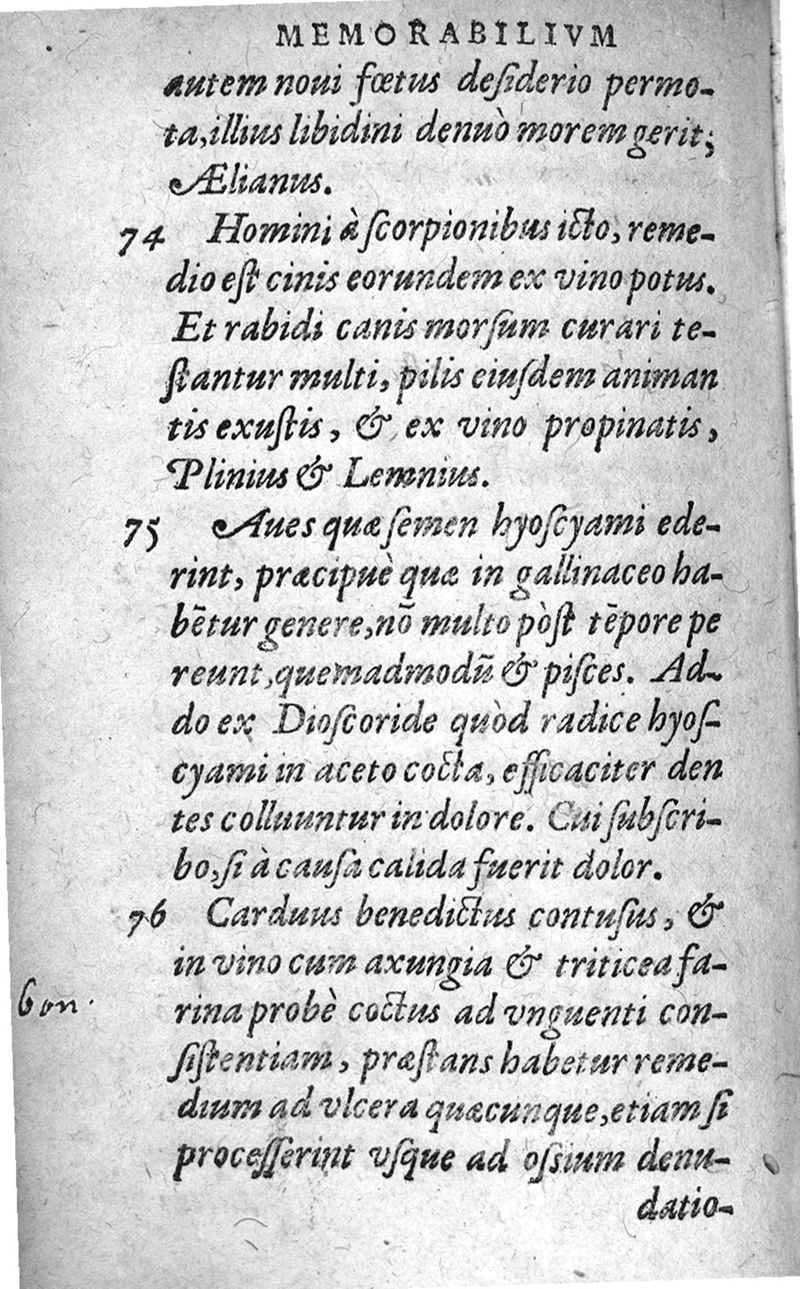 MEMORABILIVM
autem noui fœtus deſiderio permo-
ta, illius libidini denuò morem gerit;
Ælianus.
74 Homini à ſcorpionibus icto, reme-
dio eſt cinis eorundem ex vino potus.
Et rabidi canis morſum curari te-
ſtantur multi, pilis eiuſdem animan
tis exuſtis, & ex vino propinatis,
Plinius & Lemnius.
75 Aues quæ ſemen hyoſcyami ede-
rint, præcipuè quæ in gallinaceo ha-
bẽtur genere, nõ multo pòſt tẽpore pe
reunt, quemadmodũ & piſces. Ad-
do ex Dioſcoride quòd radice hyoſ-
cyami in aceto cocta, efficaciter den
tes colluuntur in dolore. Cui ſubſcri-
bo, ſi à cauſa calida fuerit dolor.
76 Carduus benedictus contuſus, &
in vino cum axungia & triticea fa-
bon.
rina probè coctus ad vnguenti con-
ſiſtentiam, præſtans habetur reme-
dium ad vlcera quæcunque, etiam ſi
proceſſerint vſque ad oſsium denu-
datio-